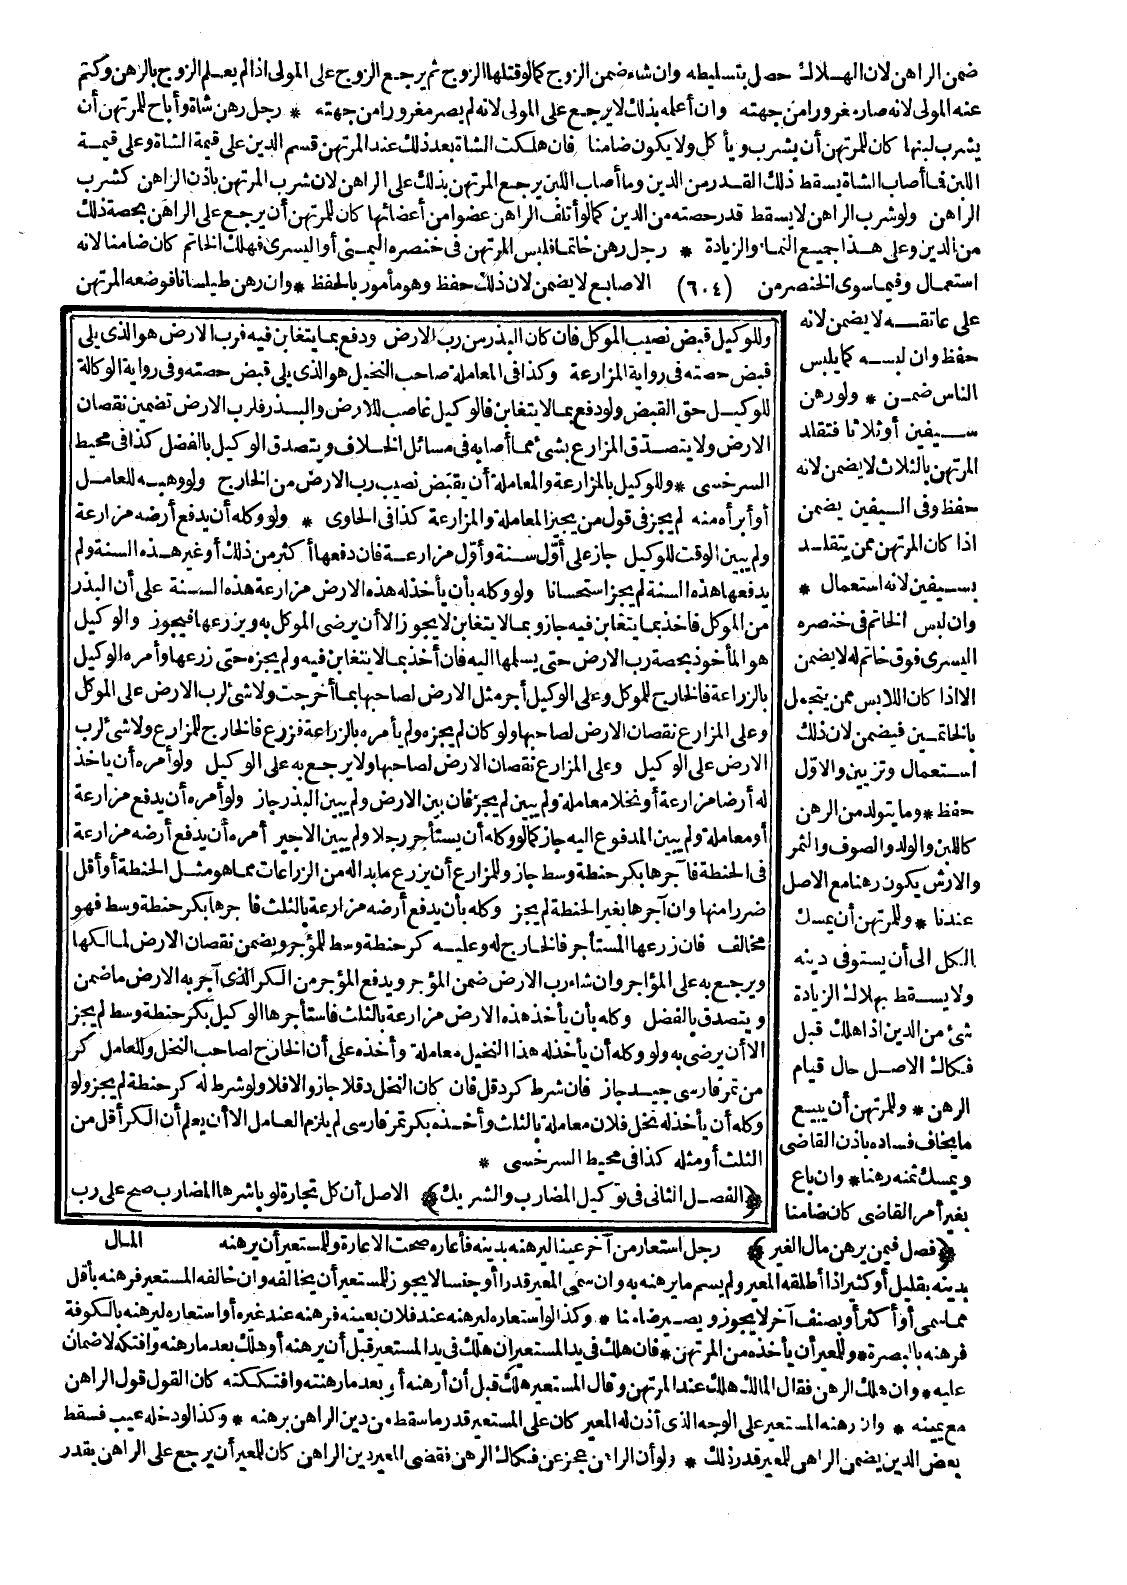 ضمن الراهن لان الهلاك حصل بتسليطه وان شاء ضمن الزوج كما لو قتلها الزوج ثم يرجع الزوج على المولى اذا لم يعلم الزوج بالرهن وكتم
عنه المولى لانه صار مغرورا من جهته وان أعلمه بذلك لا يرجع على المولى لانه لم يصر مغرورا من جهته * رجل رهن شاة وأباح للمرتهن أن
يشرب لبنها كان للمرتهن أن يشرب ويأكل ولا يكون ضامنا فان هلكت الشاة بعد ذلك عند المرتهن قسم الدين على قيمة الشاة وعلى قيمة
اللبن فما أصاب الشاة يسقط ذلك القدر من الدين وما أصاب اللبن يرجع المرتهن بذلك على الراهن لان شرب المرتهن باذن الراهن كشرب
الراهن ولو شرب الراهن لا يسقط قدر حصته من الدين كما لو أتلف الراهن عضوا من أعضائها كان للمرتهن أن يرجع على الراهن بحصة ذلك
من الدين وعلى هذا جميع النماء والزيادة * رجل رهن خاتما فلبس المرتهن فى خنصره اليمنى أو اليسرى فهلك الخاتم كان ضامنا لانه
استعمال وفيما سوى الخنصر من (٦٠٤) الاصابع لا يضمن لان ذلك حفظ وهو مأمور بالحفظ * وان رهن طيلسانا فوضعه المرتهن
على عاتقه لا يضمن لانه
حفظ وان لبسه كما يلبس
الناس ضمن * ولو رهن
سيفين أو ثلاثا فتقلد
المرتهن بالثلاث لا يضمن لانه
حفظ وفى السيفين يضمن
اذا كان المرتهن ممن يتقلد
بسيفين لانه استعمال *
وان لبس الخاتم فى خنصره
اليسرى فوق خاتم له لا يضمن
الا اذا كان اللابس ممن يتجمل
بالخاتمين فيضمن لان ذلك
استعمال وتزيين والاول
حفظ * وما يتولد من الرهن
كاللبن والولد والصوف والثمر
والارش يكون رهنا مع الاصل
عندنا * وللمرتهن أن يمسك
الكل الى أن يستوفى دينه
ولا يسقط بهلاك الزيادة
شئ من الدين اذا هلك قبل
فكاك الاصل حال قيام
الرهن * وللمرتهن أن يبيع
ما يخاف فساده باذن القاضى
ويمسك ثمنه رهنا * وان باع
بغير أمر القاضى كان ضامنا
وللوكيل قبض نصيب الموكل فان كان البذر من رب الارض ودفع بما يتغابن فيه فرب الارض هو الذى يلى
قبض حصته فى رواية المزارعة وكذا فى المعاملة صاحب النخيل هو الذى يلى قبض حصته وفى رواية الوكالة
للوكيل حق القبض ولو دفع بما لا يتغابن فالوكيل غاصب للارض والبذر فلرب الارض تضمين نقصان
الارض ولا يتصدق المزارع بشئ مما أصابه فى مسائل الخلاف ويتصدق الوكيل بالفضل كذا فى محيط
السرخسى * وللوكيل بالمزارعة والمعاملة أن يقبض نصيب رب الارض من الخارج ولو وهبه للعامل
أو أبرأه منه لم يجز فى قول من يجيز المعاملة والمزارعة كذا فى الحاوى * ولو وكله أن يدفع أرضه مزارعة
ولم يبين الوقت للوكيل جاز على أول سنة وأول مزارعة فان دفعها أكثر من ذلك أو غير هذه السنة ولم
يدفعها هذه السنة لم يجز استحسانا ولو وكله بأن يأخذ له هذه الارض مزارعة هذه السنة على أن البذر
من الموكل فاخذ بما يتغابن فيه جاز وبما لا يتغابن لا يجوز الا أن يرضى الموكل به ويزرعها فيجوز والوكيل
هو المأخوذ بحصة رب الارض حتى يسلمها اليه فان أخذ بما لا يتغابن فيه ولم يجزه حتى زرعها وأمره الوكيل
بالزراعة فالخارج للموكل وعلى الوكيل أجر مثل الارض لصاحبها بما أخرجت ولا شئ لرب الارض على الموكل
وعلى المزارع نقصان الارض لصاحبها ولو كان لم يجزه ولم يأمره بالزراعة فزرع فالخارج للمزارع ولا شئ لرب
الارض على الوكيل وعلى المزارع نقصان الارض لصاحبها ولا يرجع به على الوكيل ولو أمره أن يأخذ
له أرضا مزارعة أو نخلا معاملة ولم يبين لم يجز فان بين الارض ولم يبين البذر جاز ولو أمره أن يدفع مزارعة
أو معاملة ولم يبين المدفوع اليه جاز كما لو وكله أن يستأجر رجلا ولم يبين الاجير أمره أن يدفع أرضه مزارعة
فى الحنطة فآجرها بكر حنطة وسط جاز وللمزارع أن يزرع ما بدا له من الزراعات مما هو مثل الحنطة أو أقل
ضررا منها وان آجرها بغير الحنطة لم يجز وكله بأن يدفع أرضه مزارعة بالثلث فآجرها بكر حنطة وسط فهو
مخالف فان زرعها المستأجر فالخارج له وعليه كر حنطة وسط للمؤجر ويضمن نقصان الارض لمالكها
ويرجع به على المؤاجر وان شاء رب الارض ضمن المؤجر ويدفع المؤجر من الكر الذى آجر به الارض ما ضمن
ويتصدق بالفضل وكله بأن يأخذ هذه الارض مزارعة بالثلث فاستأجرها الوكيل بكر حنطة وسط لم يجز
الا أن يرضى به ولو وكله أن يأخذ له هذا النخيل معاملة وأخذه على أن الخارج لصاحب النخل وللعامل كر
من تمر فارسى جيد جاز فان شرط كر دقل فان كان النخل دقلا جاز والا فلا ولو شرط له كر حنطة لم يجز ولو
وكله أن يأخذ له نخل فلان معاملة بالثلث وأخذه بكر تمر فارسى لم يلزم العامل الا أن يعلم أن الكر أقل من
الثلث أو مثله كذا فى محيط السرخسى *
﴿الفصل الثانى فى توكيل المضارب والشريك﴾ الاصل أن كل تجارة لو باشرها المضارب صح على رب
المال
﴿فصل فيمن يرهن مال الغير﴾ رجل استعار من آخر عينا ليرهنه بدينه فأعاره صحت الاعارة وللمستعير أن يرهنه
بدينه بقليل أو كثير اذا أطلقه المعير ولم يسم ما يرهنه به وان سمى المعير قدرا أو جنسا لا يجوز للمستعير أن يخالفه وان خالفه المستعير فرهنه بأقل
مما سمى أو أكثر أو بصنف آخر لا يجوز ويصير ضامنا * وكذا لو استعاره ليرهنه عند فلان بعينه فرهنه عند غيره أو استعاره ليرهنه بالكوفة
فرهنه بالبصرة * وللمعير أن يأخذه من المرتهن * فان هلك فى يد المستعير ان هلك فى يد المستعير قبل أن يرهنه أو هلك بعد ما رهنه وافتكه لا ضمان
عليه * وان هلك الرهن فقال المالك هلك عند المرتهن وقال المستعير هلك قبل أن أرهنه أو بعد ما رهنته وافتككته كان القول قول الراهن
مع يمينه * وان رهنه المستعير على الوجه الذى أذن له المعير كان على المستعير قدر ما سقط من دين الراهن برهنه * وكذا لو دخله عيب فسقط
بعض الدين يضمن الراهن للمعير قدر ذلك * ولو أن الراهن عجز عن فكاك الرهن فقضى المعير دين الراهن كان للمعير أن يرجع على الراهن بقدر